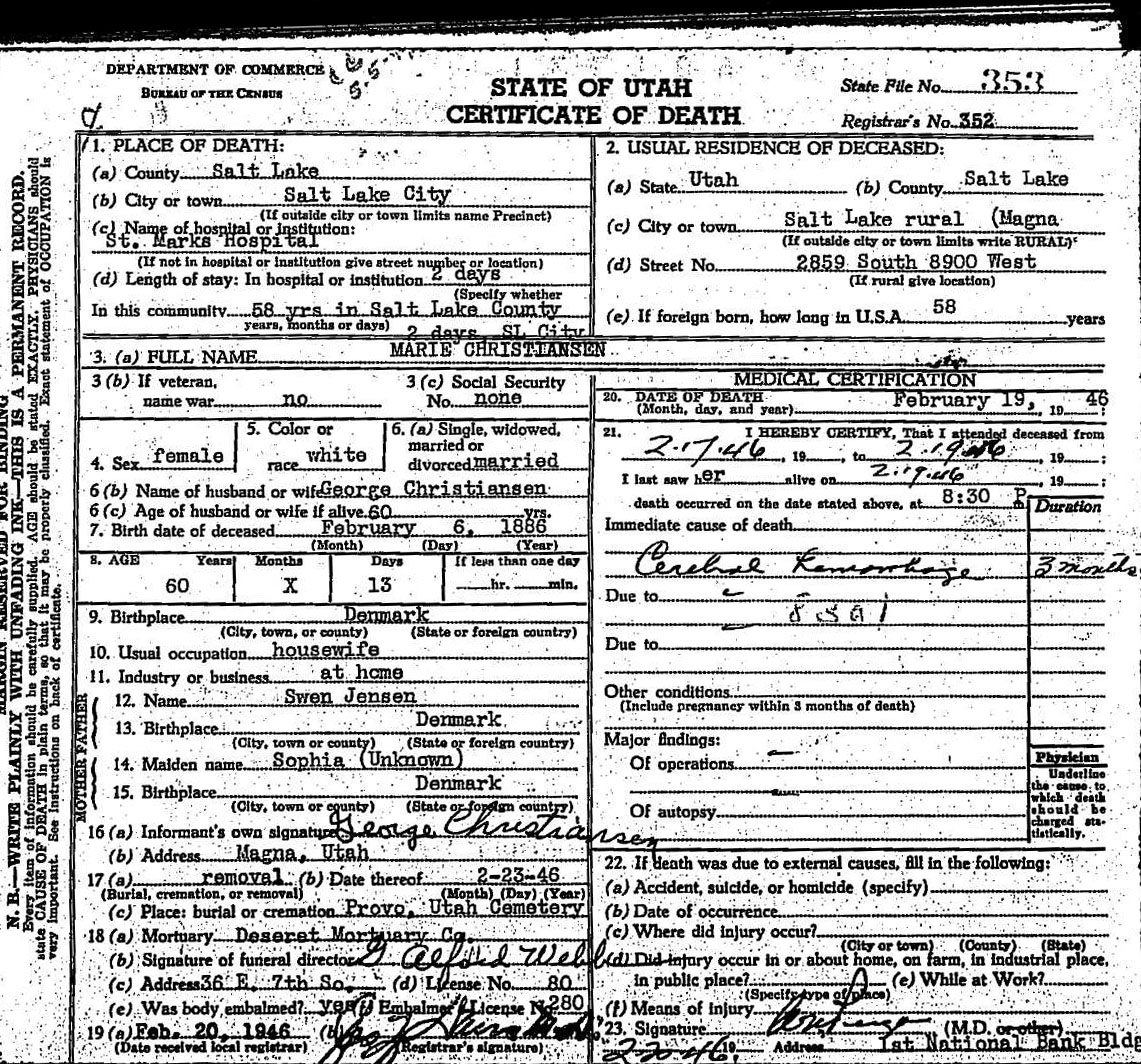 DEPARTMENT OF COMMERCE
BUREAU OF THE CENSUS
STATE OF UTAH
CERTIFICATE OF DEATH
State File No. 353
Registrar's No. 352
MARGIN RESERVED FOR BINDING
N. B.—WRITE PLAINLY WITH UNFADING INK—THIS IS A PERMANENT RECORD.
Every item of information should be carefully supplied. AGE should be stated EXACTLY. PHYSICIANS should
state CAUSE OF DEATH in plain terms, so that it may be properly classified. Exact statement of OCCUPATION is
very important. See instructions on back of certificate.
1. PLACE OF DEATH:
(a) County Salt Lake
(b) City or town Salt Lake City
(If outside city or town limits name Precinct)
(c) Name of hospital or institution:
St. Marks Hospital
(If not in hospital or institution give street number or location)
(d) Length of stay: In hospital or institution 2 days
(Specify whether
In this community 58 yrs in Salt Lake County
years, months or days) 2 days SL City
2. USUAL RESIDENCE OF DECEASED:
(a) State Utah (b) County Salt Lake
(c) City or town Salt Lake rural (Magna
(If outside city or town limits write RURAL)
(d) Street No. 2859 South 8900 West
(If rural give location)
(e) If foreign born, how long in U.S.A. 58 years
3. (a) FULL NAME MARIE CHRISTIANSEN
3 (b) If veteran, name war no
3 (c) Social Security No. none
4. Sex female
5. Color or race white
6. (a) Single, widowed, married or divorced married
6 (b) Name of husband or wife George Christiansen
6 (c) Age of husband or wife if alive 60 yrs.
7. Birth date of deceased February 6, 1886
(Month) (Day) (Year)
8. AGE Years Months Days If less than one day
60 X 13 hr. min.
9. Birthplace Denmark
(City, town, or county) (State or foreign country)
10. Usual occupation housewife
11. Industry or business at home
FATHER
12. Name Swen Jensen
13. Birthplace Denmark
(City, town or county) (State or foreign country)
MOTHER
14. Maiden name Sophia (Unknown)
15. Birthplace Denmark
(City, town or county) (State or foreign country)
16 (a) Informant's own signature George Christiansen
(b) Address Magna, Utah
17 (a) removal (b) Date thereof 2-23-46
(Burial, cremation, or removal) (Month) (Day) (Year)
(c) Place: burial or cremation Provo, Utah Cemetery
18 (a) Mortuary Deseret Mortuary Co.
(b) Signature of funeral director G Alford Webb
(c) Address 36 E. 7th So. (d) License No. 80
(e) Was body embalmed? yes (f) Embalmer License No. 280
19 (a) Feb. 20, 1946 (b)
(Date received local registrar) (Registrar's signature)
MEDICAL CERTIFICATION
20. DATE OF DEATH
(Month, day, and year) February 19, 19 46
21. I HEREBY CERTIFY, That I attended deceased from
2-17-46, 19 , to 2-19-46, 19 ;
I last saw her alive on 2-19-46, 19 ;
death occurred on the date stated above, at 8:30 P m.
Duration
Immediate cause of death
Cerebral Hemorrhage 3 months
Due to
Due to
Other conditions
(Include pregnancy within 3 months of death)
Major findings:
Of operations
Of autopsy
Physician
Underline
the cause to
which death
should be
charged sta-
tistically.
22. If death was due to external causes, fill in the following:
(a) Accident, suicide, or homicide (specify)
(b) Date of occurrence
(c) Where did injury occur?
(City or town) (County) (State)
(d) Did injury occur in or about home, on farm, in industrial place,
in public place? (e) While at Work?
(Specify type of place)
(f) Means of injury
23. Signature (M.D. or other)
2-20-46 19 Address 1st National Bank Bld